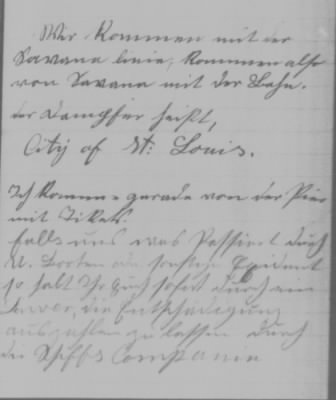 Wir kommen mit der
Savana linie, kommen also
von Savana mit der Bahn.
der Dampfer heißt,
City of St: Louis.
Ich komme gerade von der Pier
mit Tikets.
falls uns was Passiert durch
U. Booten od. sonstige
so habt Ihr Euch sofort durch ein
die Entschädigung
auszahlen zu lassen durch
die Schiffs Companie